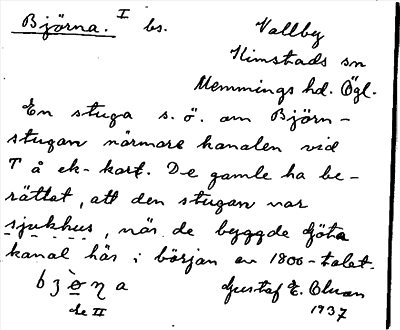 Björna. I bs. Vallby
Kimstads sn
Memmings hd. Ögl.
En stuga s. ö. om Björn-
stugan närmare kanalen vid
T å ek-kart. De gamle ha be-
rättat, att den stugan var
sjukhus, när de byggde Göta
kanal här i början av 1800-talet.
Gustaf E.
de II 1937